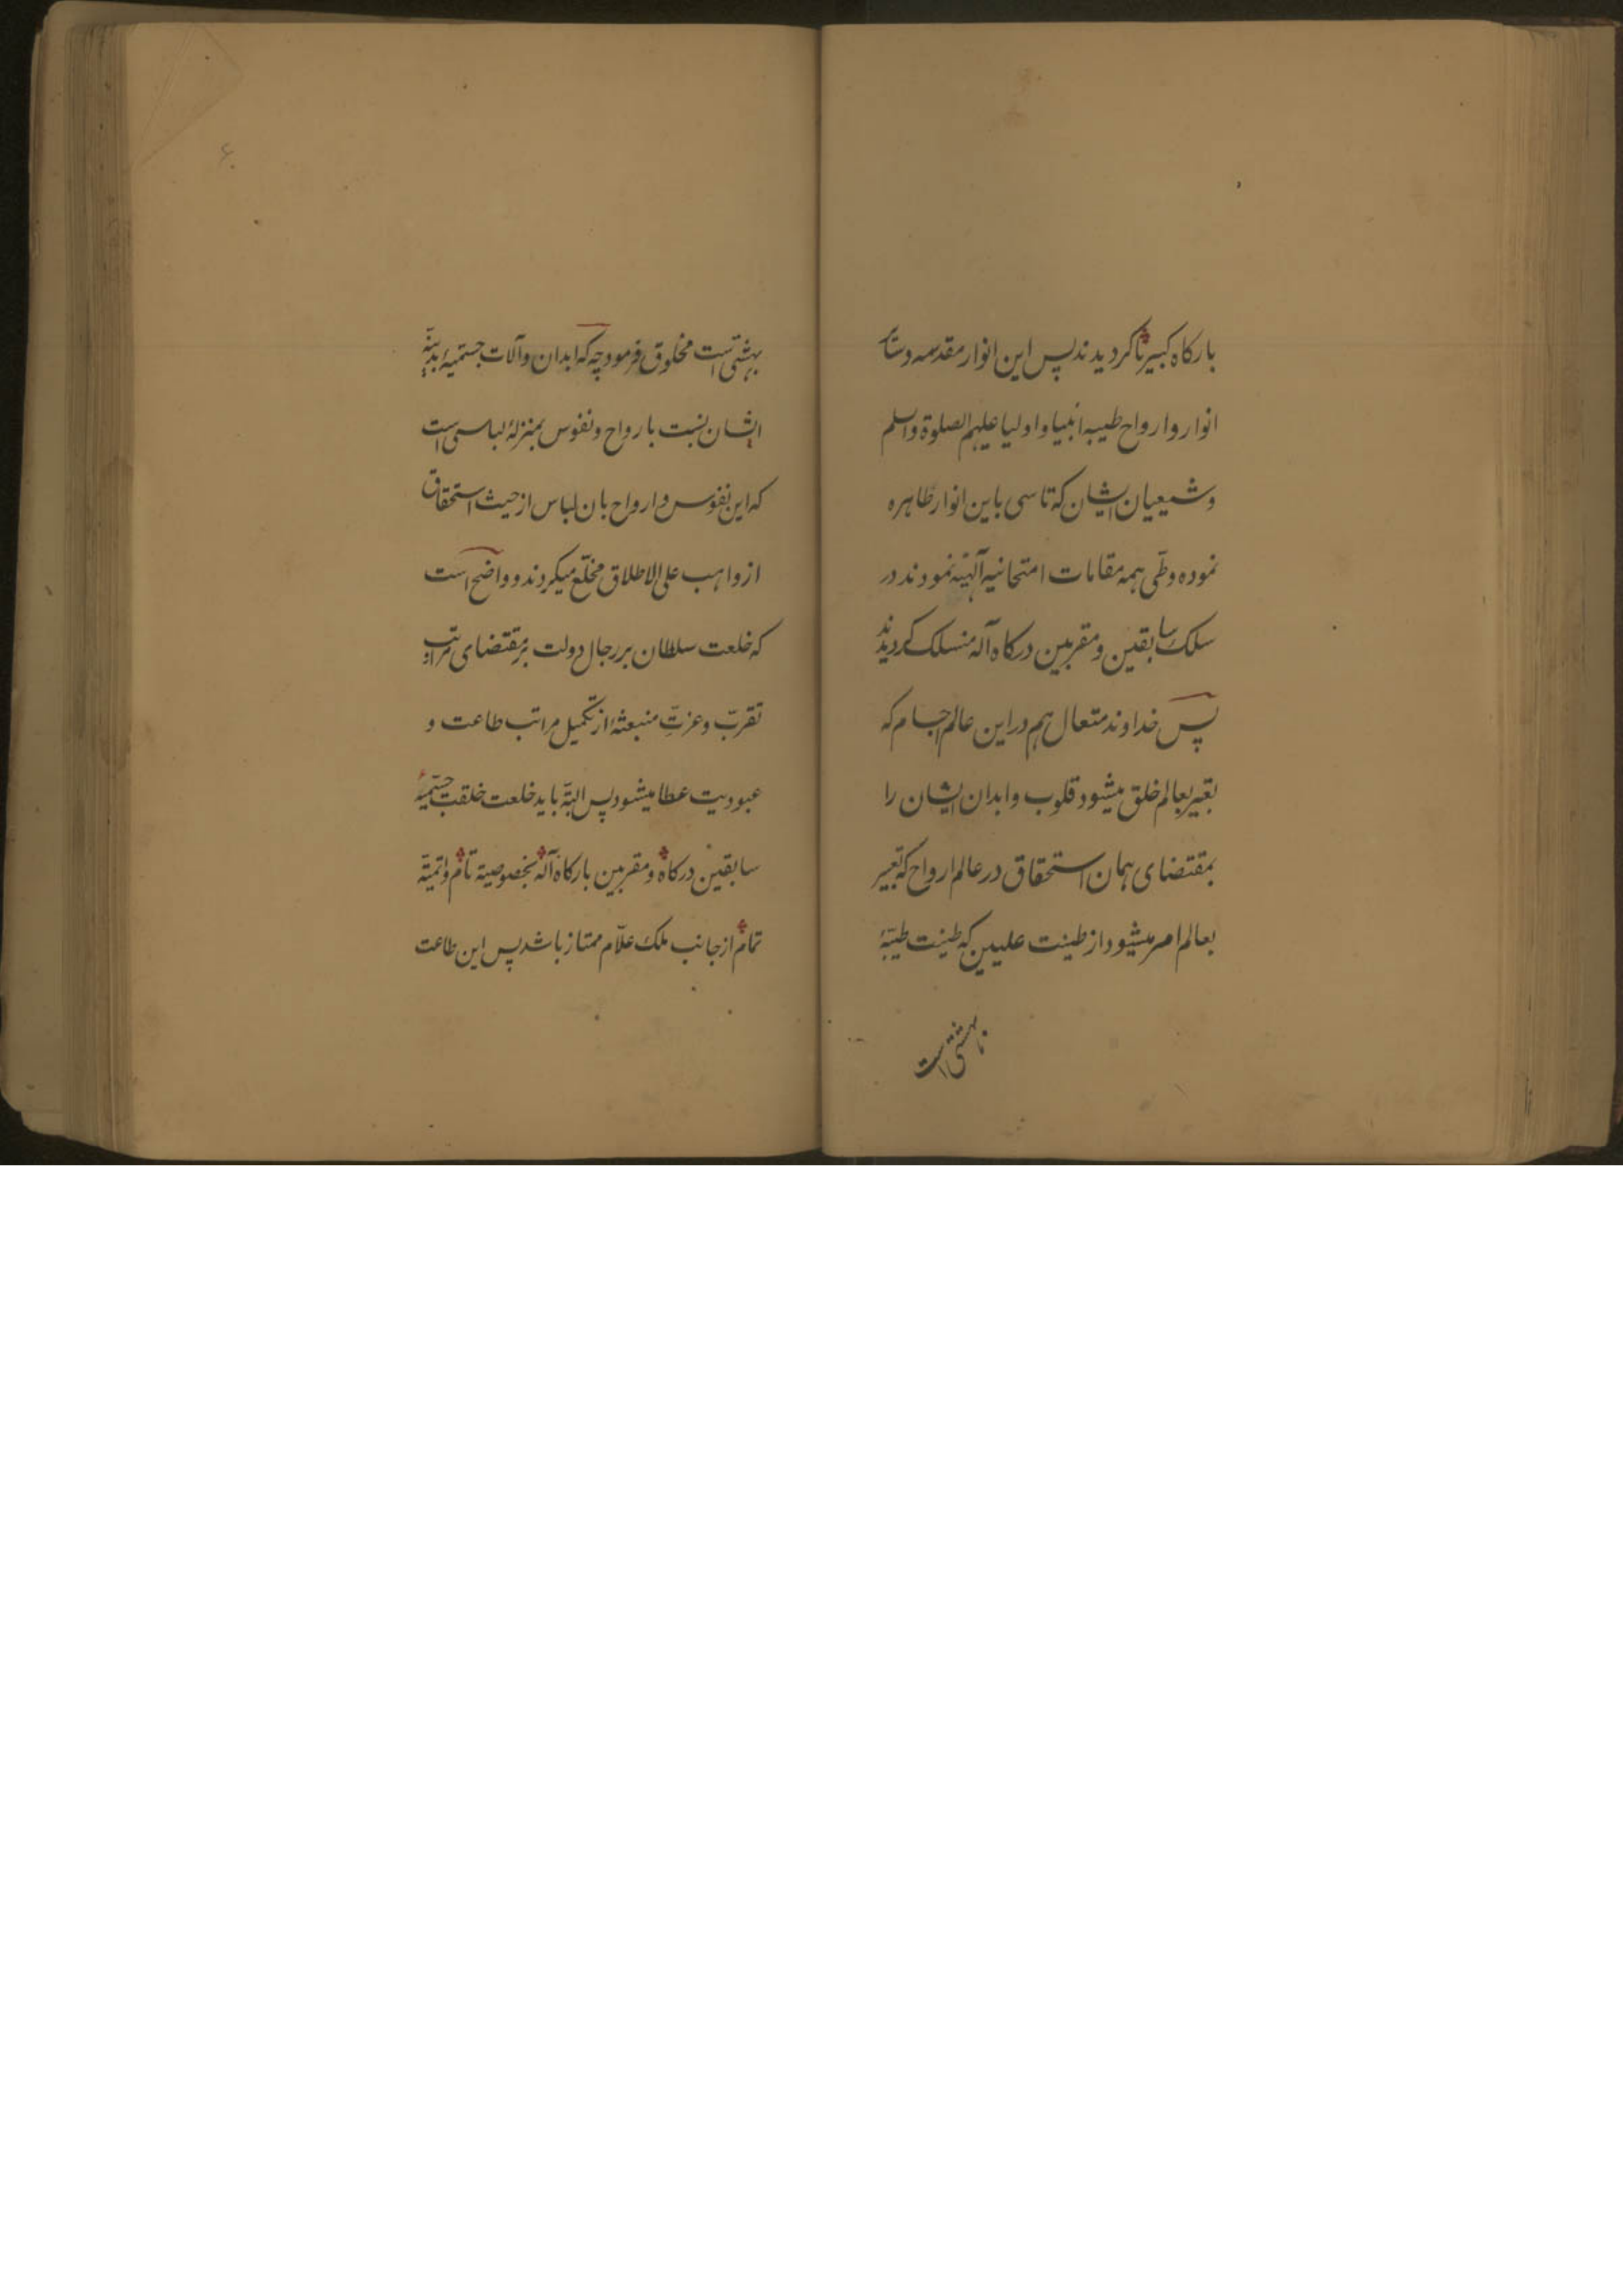 بارکاه کبیریا کردیدند پس این انوار مقدسه و سایر
انوار و ارواح طیبه انبیا و اولیا علیهم الصلوة و السلم
و شیعیان ایشان که تاسی باین انوار طاهره
نموده و طی همه مقامات امتحانیه آلهیه نمودند در
سلک سابقین و مقربین درکاه آله منسلک کردیدند
پس خداوند متعال هم در این عالم اجسام که
تعبیر بعالم خلق میشود قلوب و ابدان ایشان را
بمقتضای همان استحقاق در عالم ارواح که تعبیر
بعالم امر میشود از طینت علیین که طینت طیبّهٔ
بهشتی است
۶
بهشتی است مخلوق فرمود چه که ابدان و آلات جسمیهٔ بدنیّه
ایشان نسبت بارواح و نفوس بمنزلهٔ لباسی است
که این نفوس و ارواح بان لباس از حیث استحقاق
از واهب علی الاطلاق مخلّع میکردند و واضح است
که خلعت سلطان بر رجال دولت بر مقتضای مراتب
تقربّ و عزتِّ منبعثهٔ از تکمیل مراتب طاعت و
عبودیت عطا میشود پس البتّه باید خلعت خلقت جسمیّهٔ
سابقین درکاه و مقربین بارکاه آله بخصوصیة تامّ و اتمیّة
تمام از جانب ملک علاّم ممتاز باشد پس این طاعت